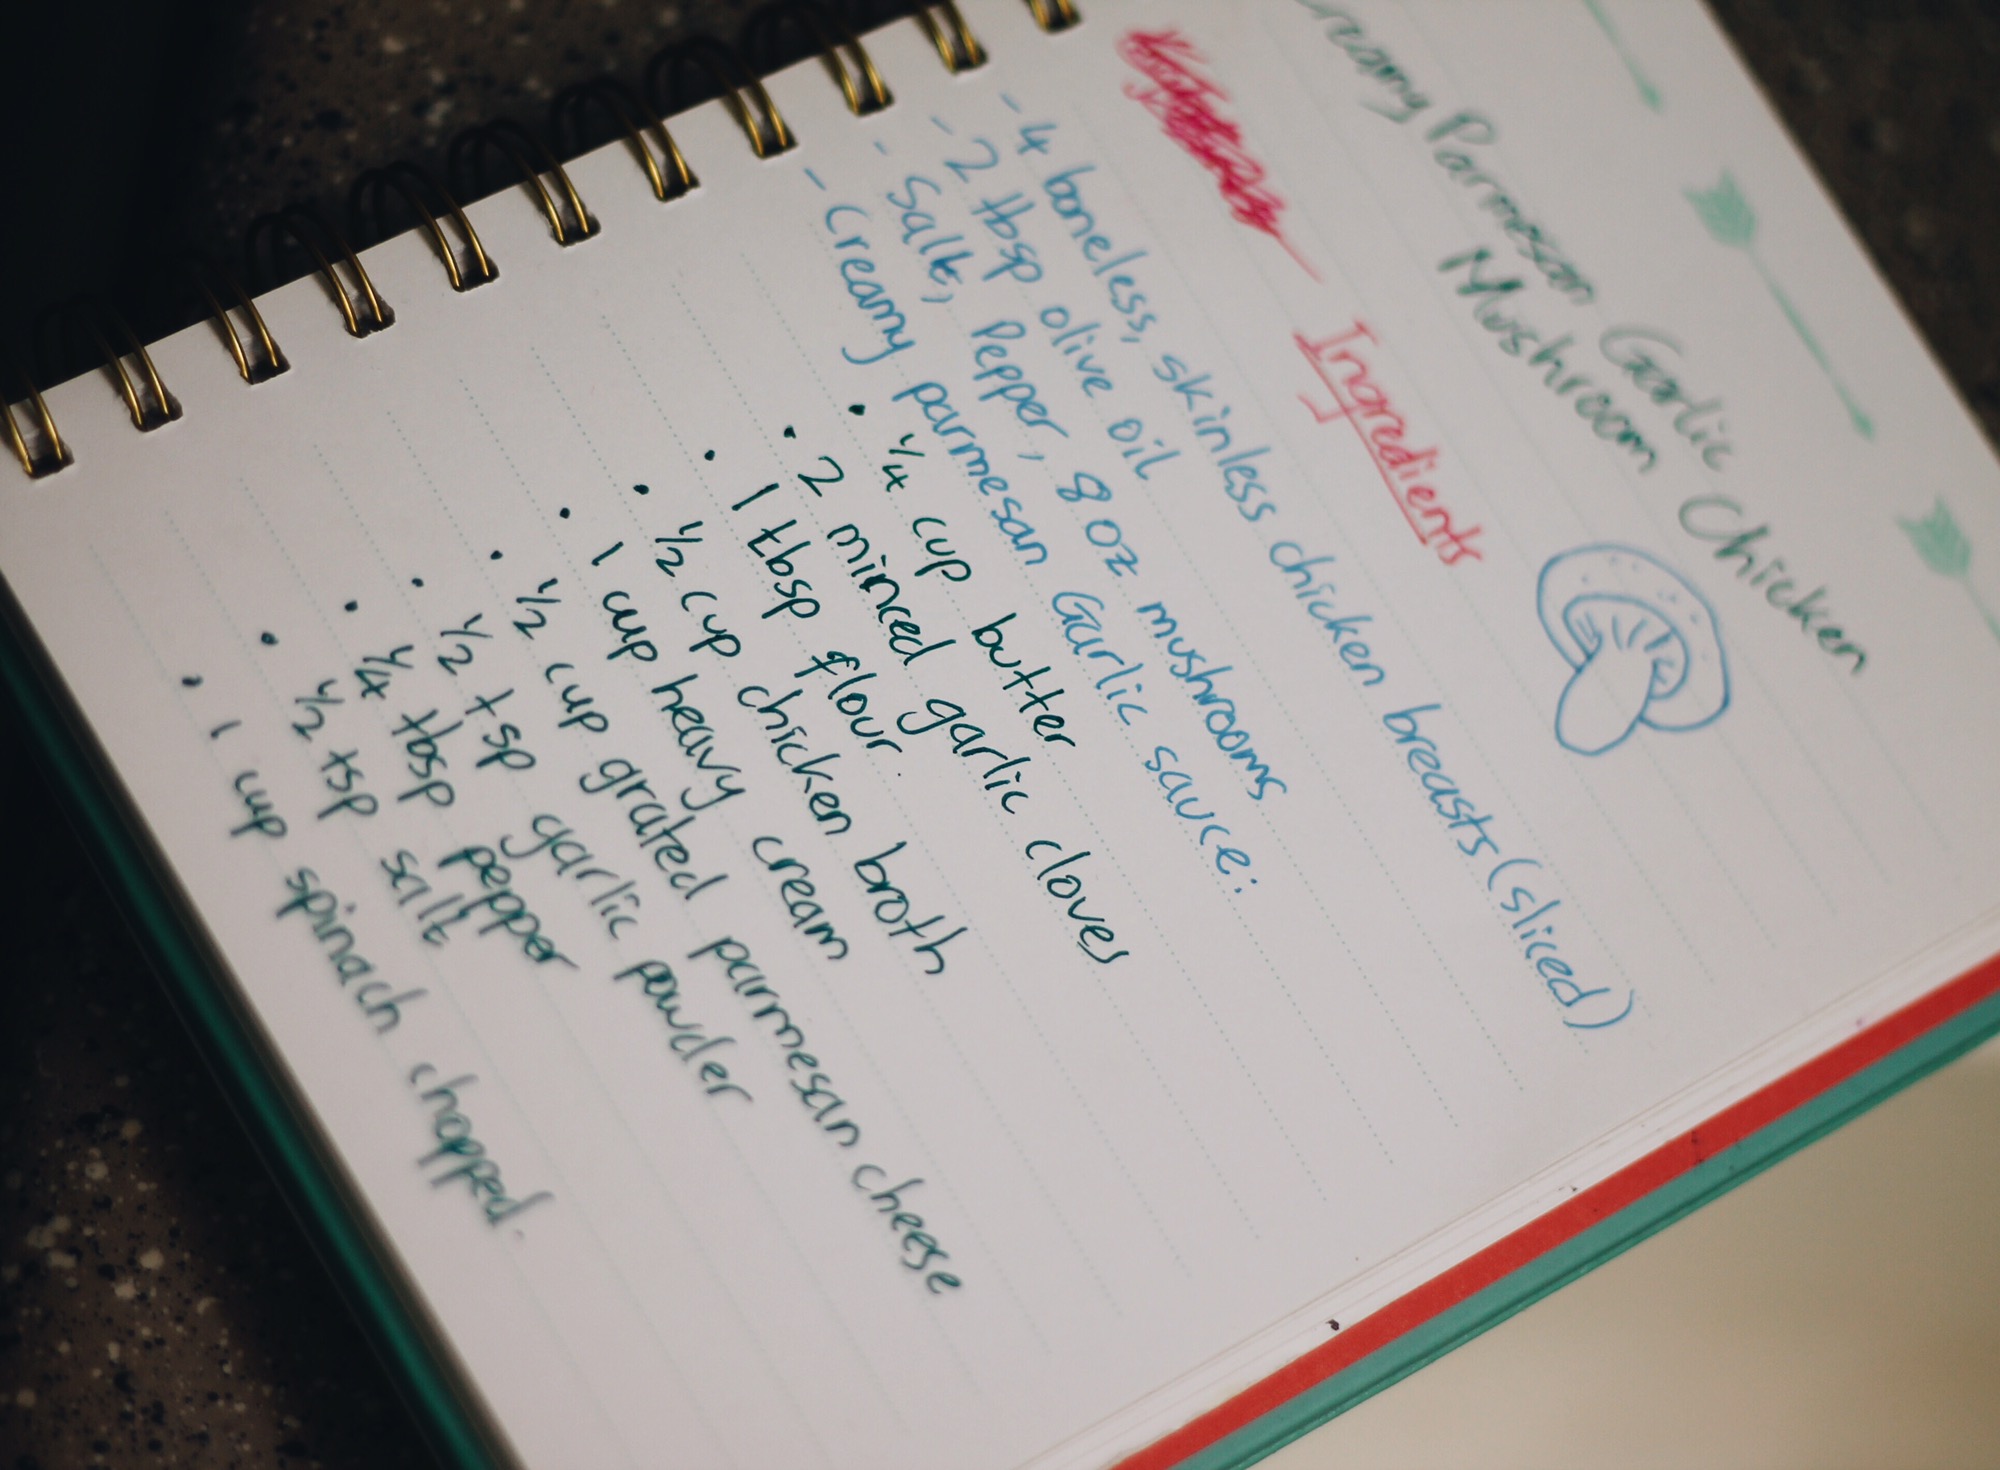 Creamy Parmesan Garlic Chicken
Mushroom
Ingredients
- 4 boneless, skinless chicken breasts (sliced)
- 2 tbsp olive oil
- Salt, Pepper, 8 oz mushrooms
- Creamy parmesan Garlic sauce:
• 1/4 cup butter
• 2 minced garlic cloves
• 1 tbsp flour.
• 1/2 cup chicken broth
• 1 cup heavy cream
• 1/2 cup grated parmesan cheese
• 1/2 tsp garlic powder
• 1/4 tbsp pepper
• 1/2 tsp salt
• 1 cup spinach chopped.